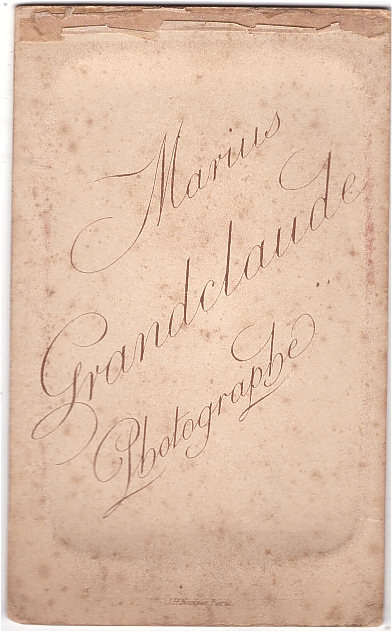 Marius
Grandclaude
Photographe
Paris